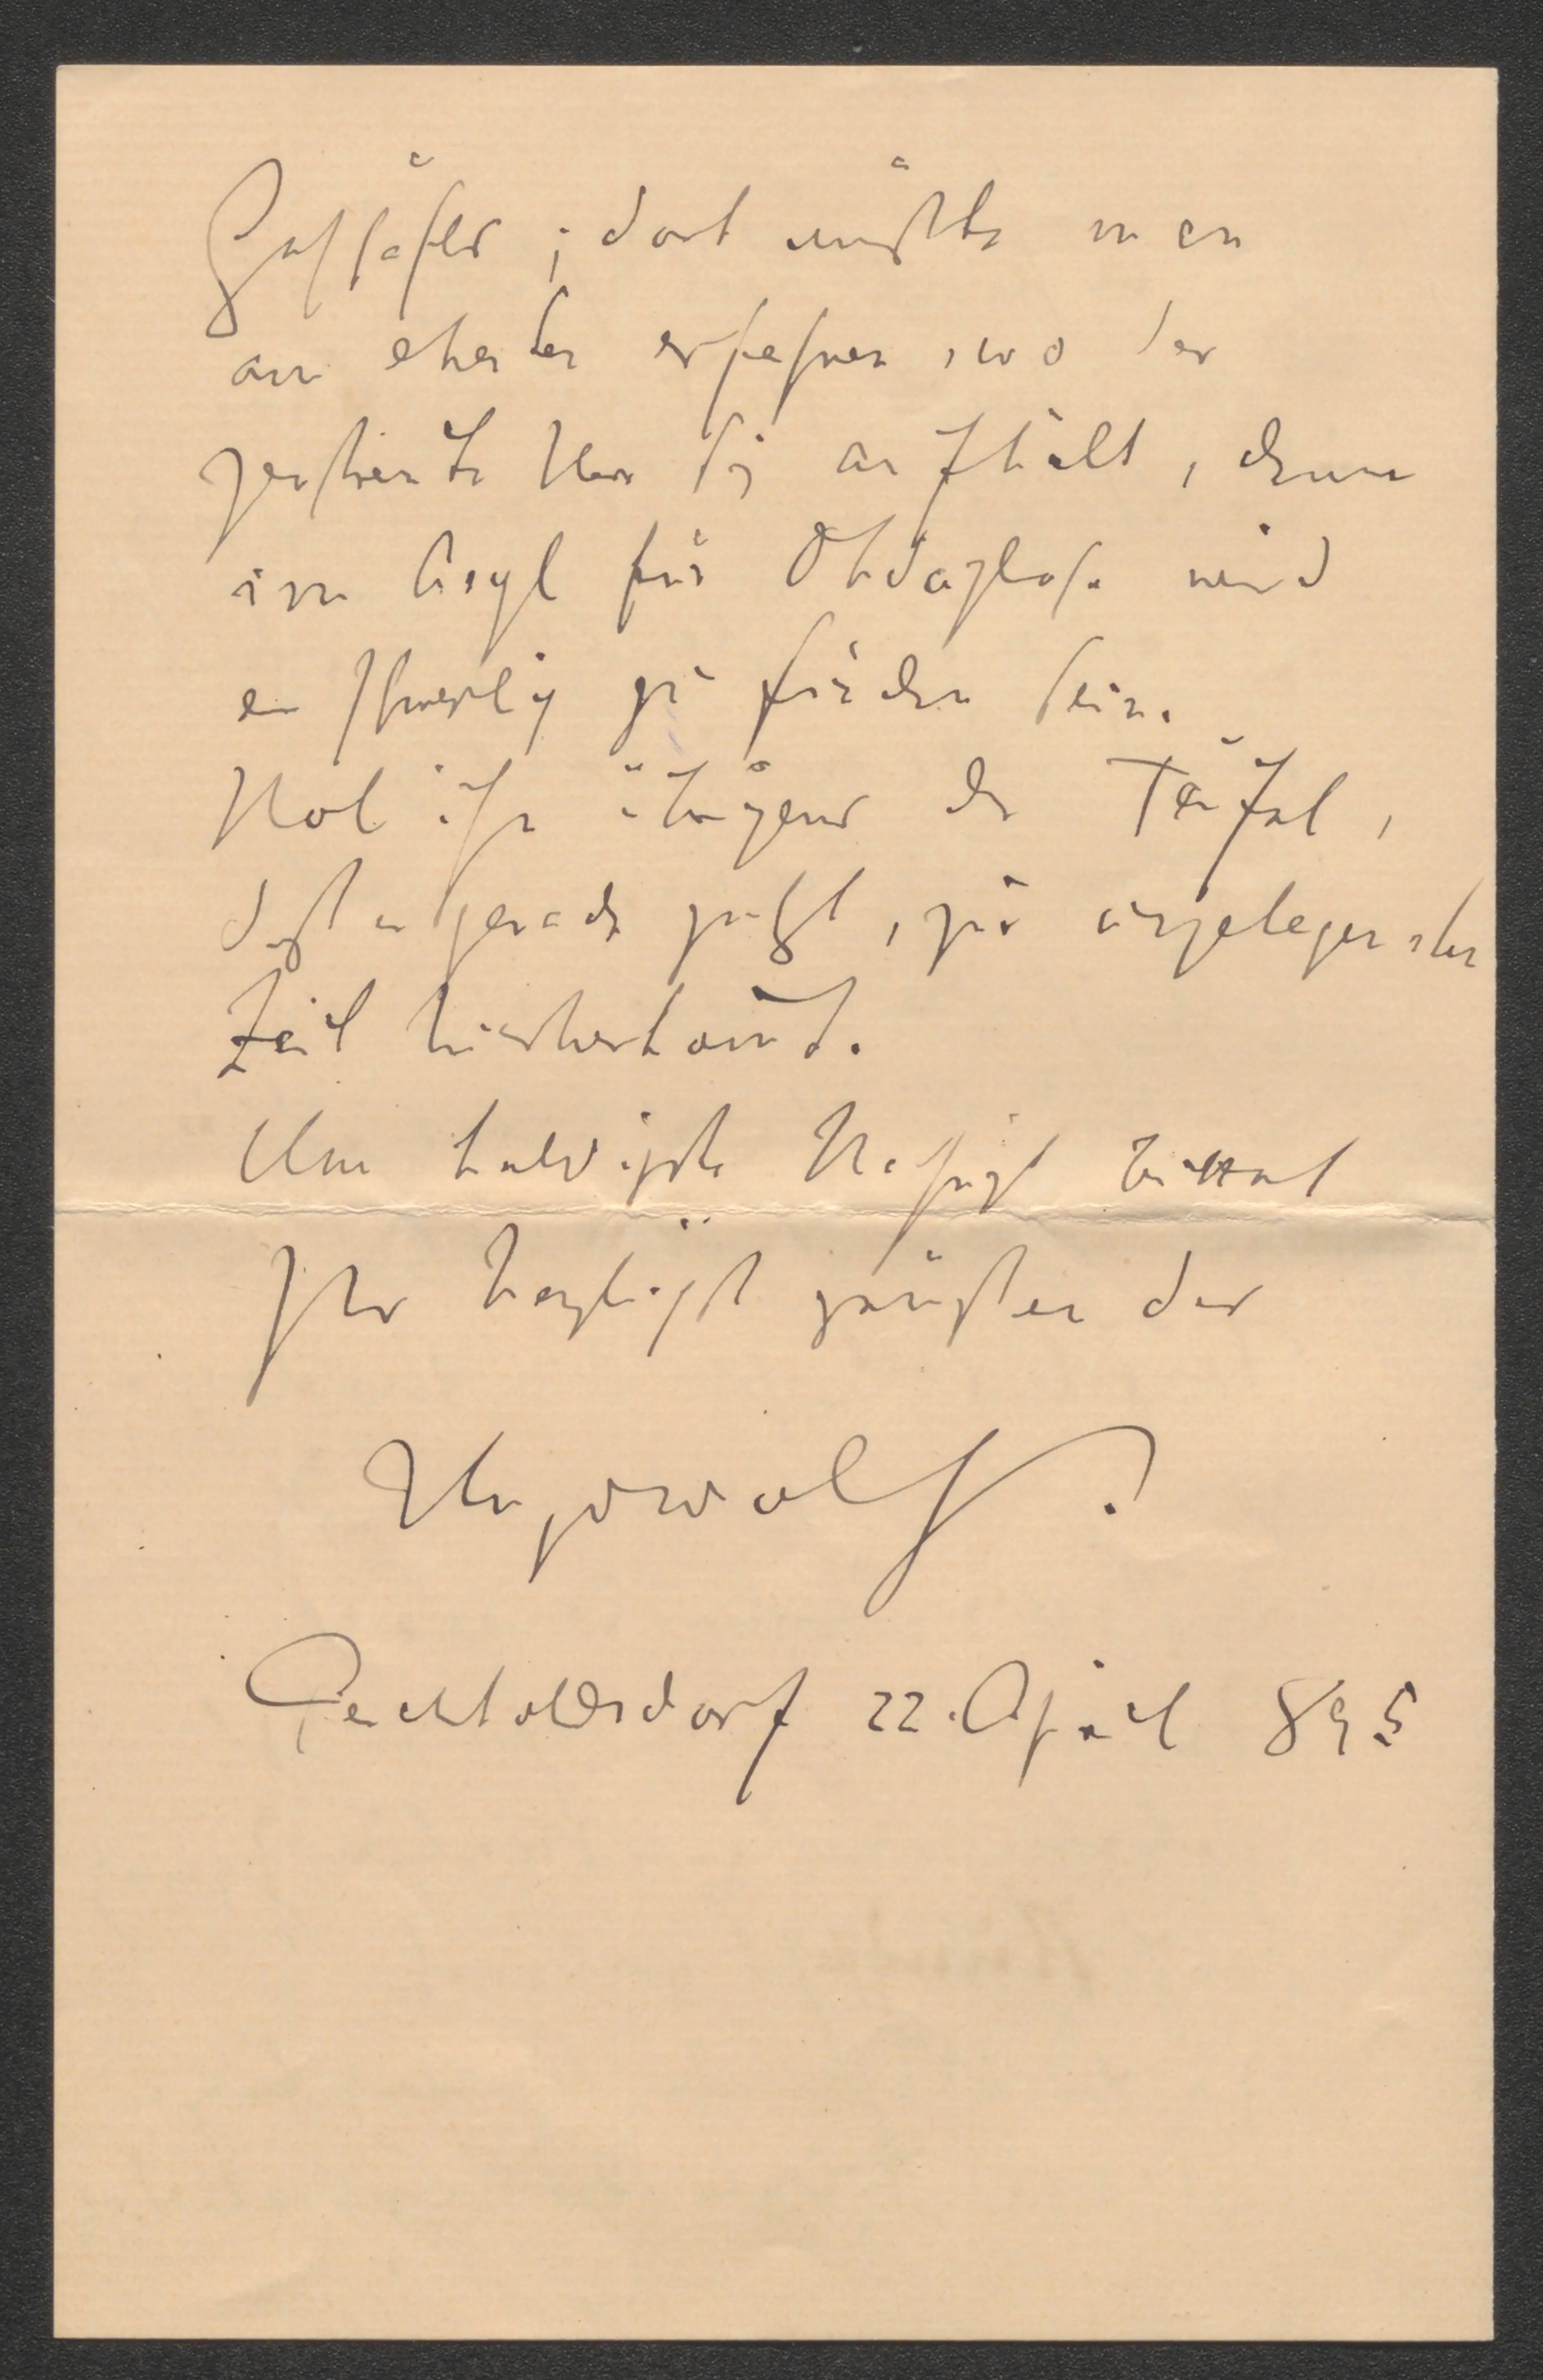 Gasthofs; dort müßte man
am ehesten erfahren, wo der
zerstreute Herr sich aufhält, denn
im Asyl für Obdachlose wird
er schwerlich zu finden sein.
Hol ihn übrigens der Teufel,
daß er gerade jetzt, zur ungelegensten
Zeit hierherkommt.
Um baldigste Nachricht bittet
Ihr herzlichst grüßender
Hugo Wolf.
Perchtoldsdorf 22. April 895